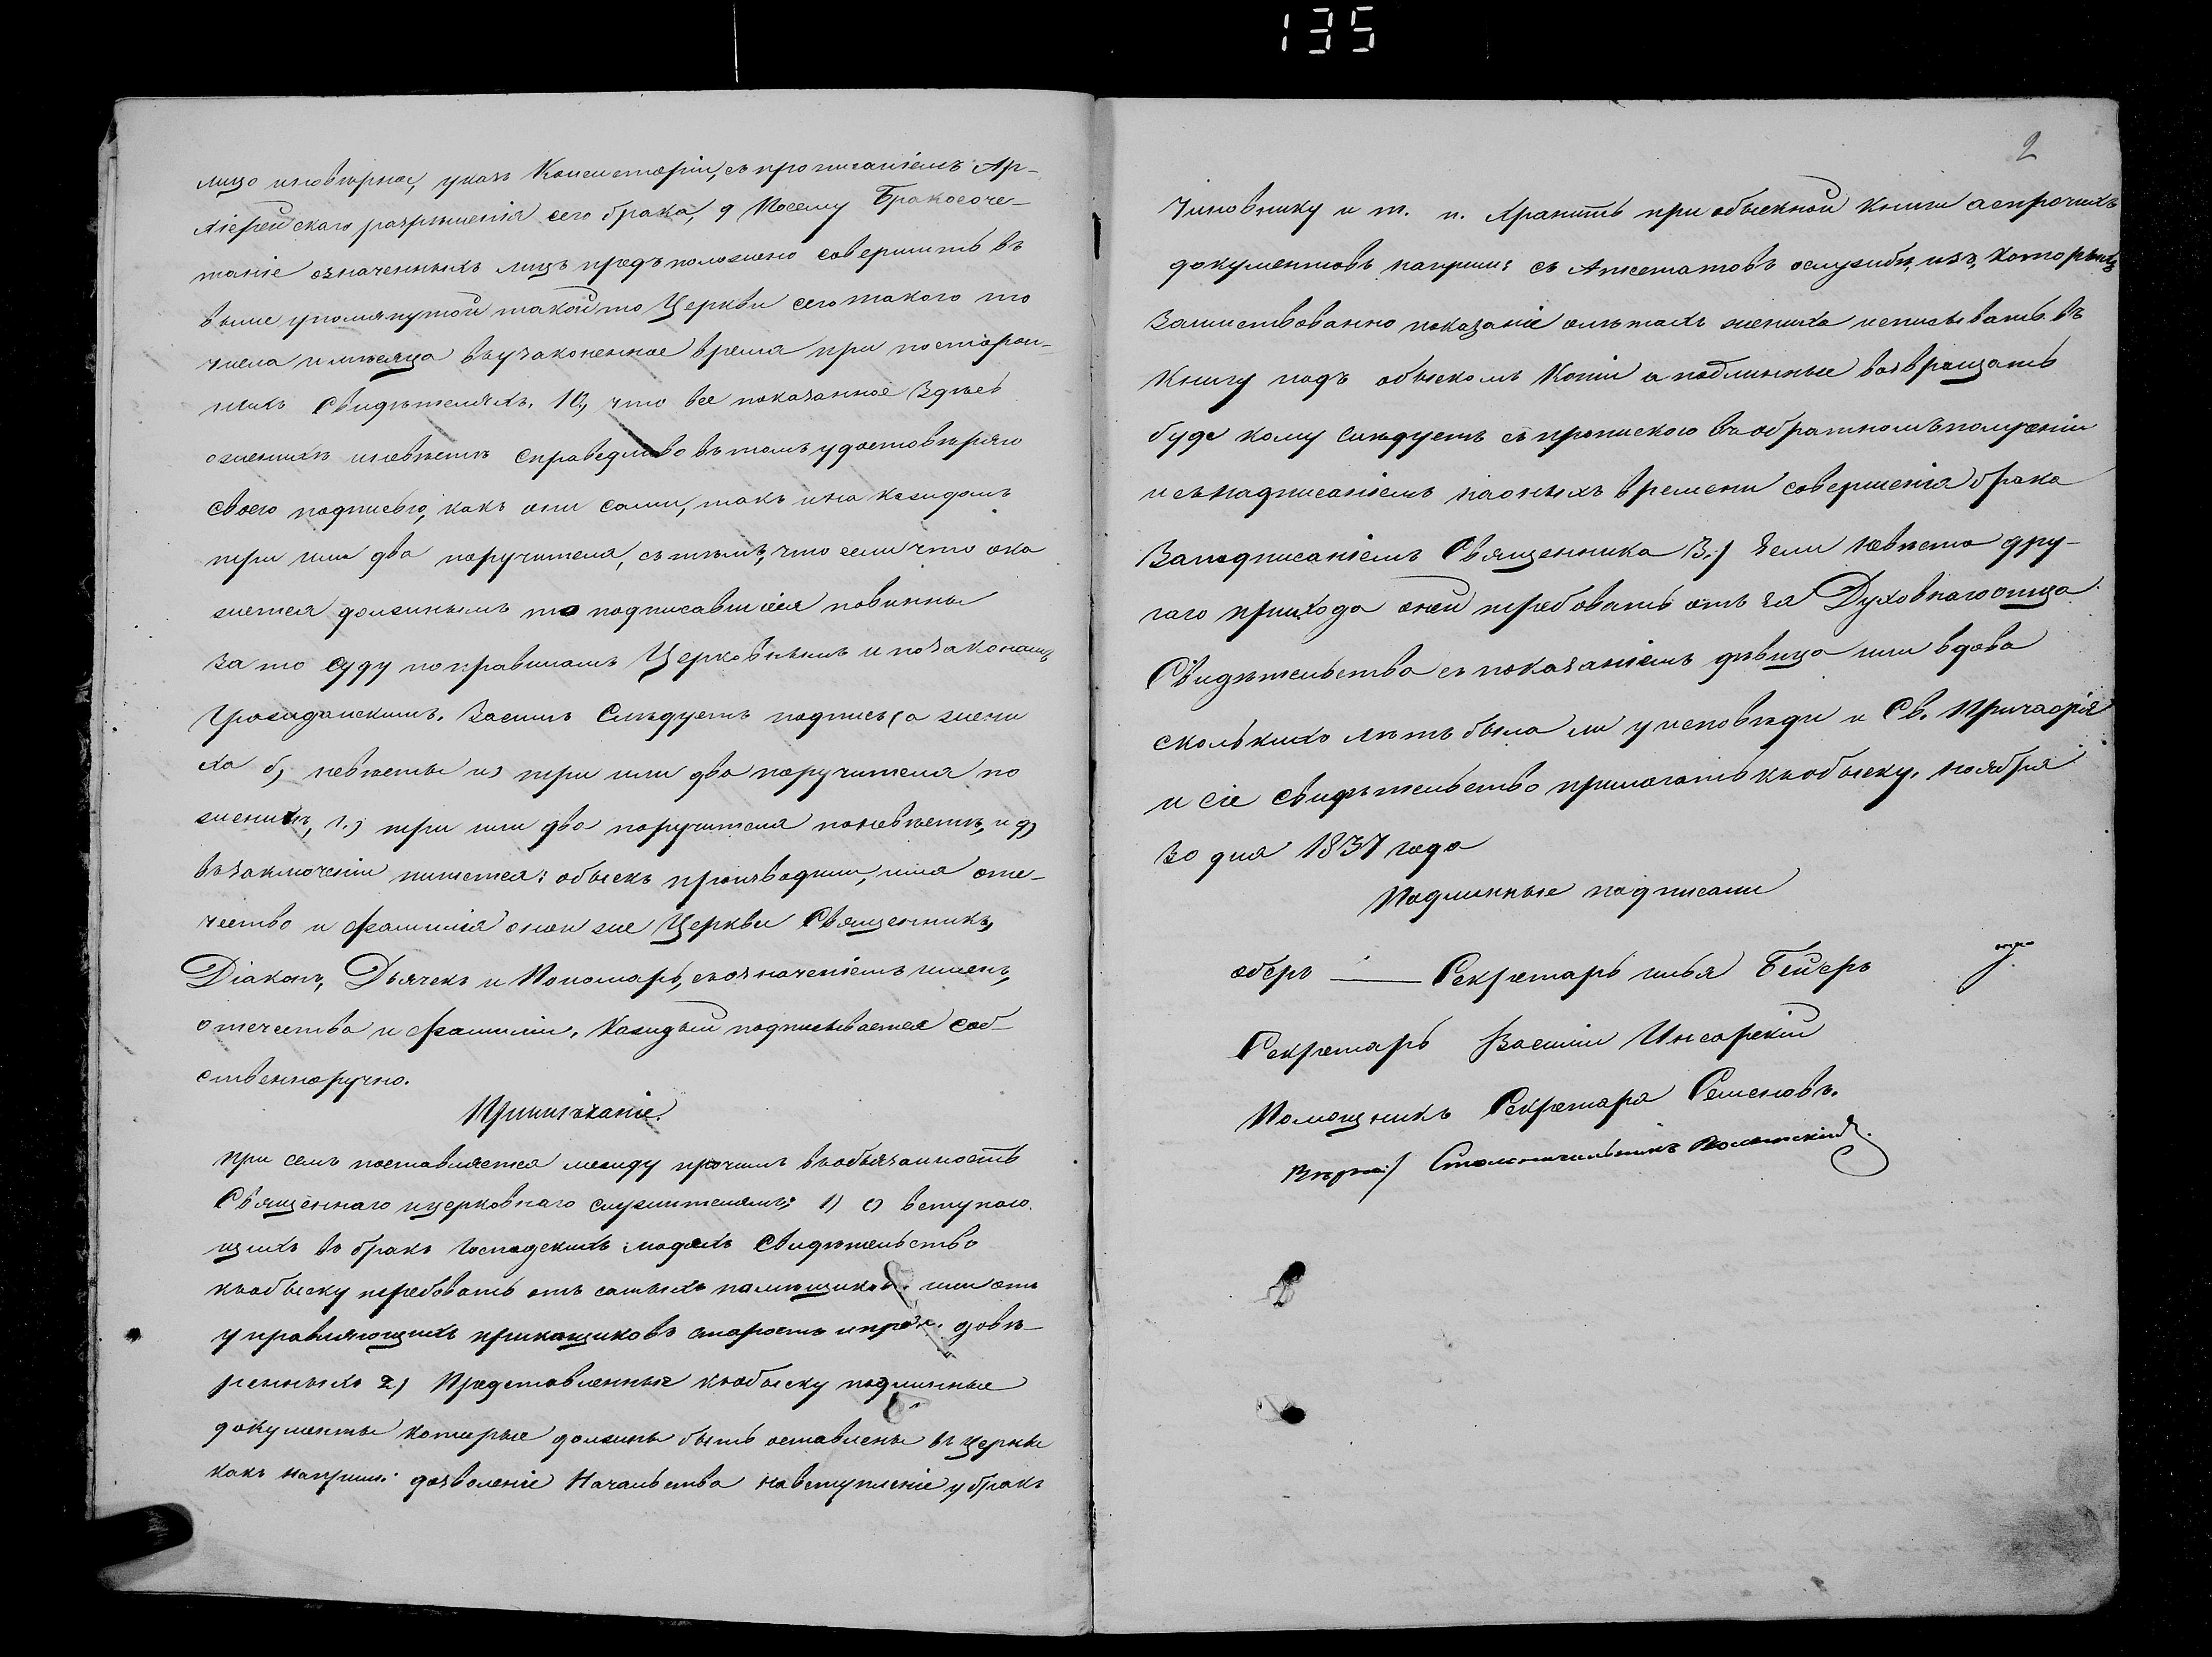 135
лицо иновѣрное, указъ Консисторіи, съ прописаніемъ Ар-
хіерейскаго разрѣшенія сего брака, 9 Посему Бракосоче-
таніе означенныхъ лицъ предъположено совершить въ
выше упомянутой такой то Церкви сего такого то
числа и мѣсяца въузаконенное время при посторон-
нихъ Свидѣтеляхъ. 10, что все показанное Здѣсь
оженихѣ иневѣстѣ справедливо вътомъ удостовѣряю
своею подписью, какъ они сами, такъ ипо каждомъ
три или два поручителя, сътѣмъ, что если что ока
жется должнымъ то подписавшіеся повинны
за то суду поправиламъ Церковнымъ и позаконамъ
Гражданскимъ. Засимъ Слѣдуетъ подпись (а жени
ха б, невѣсты и) три или два поручителя по
женихѣ, г.) три или два поручителя поневѣстѣ, и д)
възаключеніи пишется: обыскъ производили, имя оте-
чество и фамилія оной же Церкви Священникъ,
Діаконъ, Дьячекъ и Пономарь, съозначеніемъ именъ,
отечества и фамиліи. Каждый подписывается соб-
ственноручно.
Примѣчаніе.
При семъ поставляется между прочимъ въобязанность
Священнаго ицерковнаго служителямъ; 1) о) вступаю
щихъ въ бракъ Господскихъ людяхъ Свидѣтельство
къобыску требовать отъ самыхъ помѣщиковъ или отъ
управляющихъ прикащиковъ старостъ ипроч. довѣ-
ренныхъ 2) Представленные къобыску подлинные
документы которые должны быть оставлены въ церкви
какъ наприм: дозволеніе Начальства навступленіе у бракъ
2
Чиновнику и т. п. Хранить при обыскной книги аспрочихъ
документовъ наприм: съ Аттестатовъ ослужбѣ, изъ, которыхъ
Заимствованно показаніе олѣтахъ жениха исписывать въ
Книгу подъ обыскомъ Копіи а подлинные возвращать
буде кому слѣдуетъ съ прописаю въобратномъполученіи
и съ надписаніемъ наоныхъ времени совершенія брака
Заподписаніемъ Священника 3.) Если невѣста дру-
гаго прихода оной требовать отъ ея Духовнагоотца
Свидѣтельства съ показаніемъ дѣвица или вдова
сколькихъ лѣтъ была ли у исповѣди и Св. Причастія
и сіе свидѣтельство прилогать къобыску. Ноября
30 дня 1837 года
Подлинные подписали
оберъ — Секретарь илья Бейеръ
Секретарь Василіи Инсарскій
Помощникъ Секретаря Семеновъ.
Вѣрно: Столоначальникъ